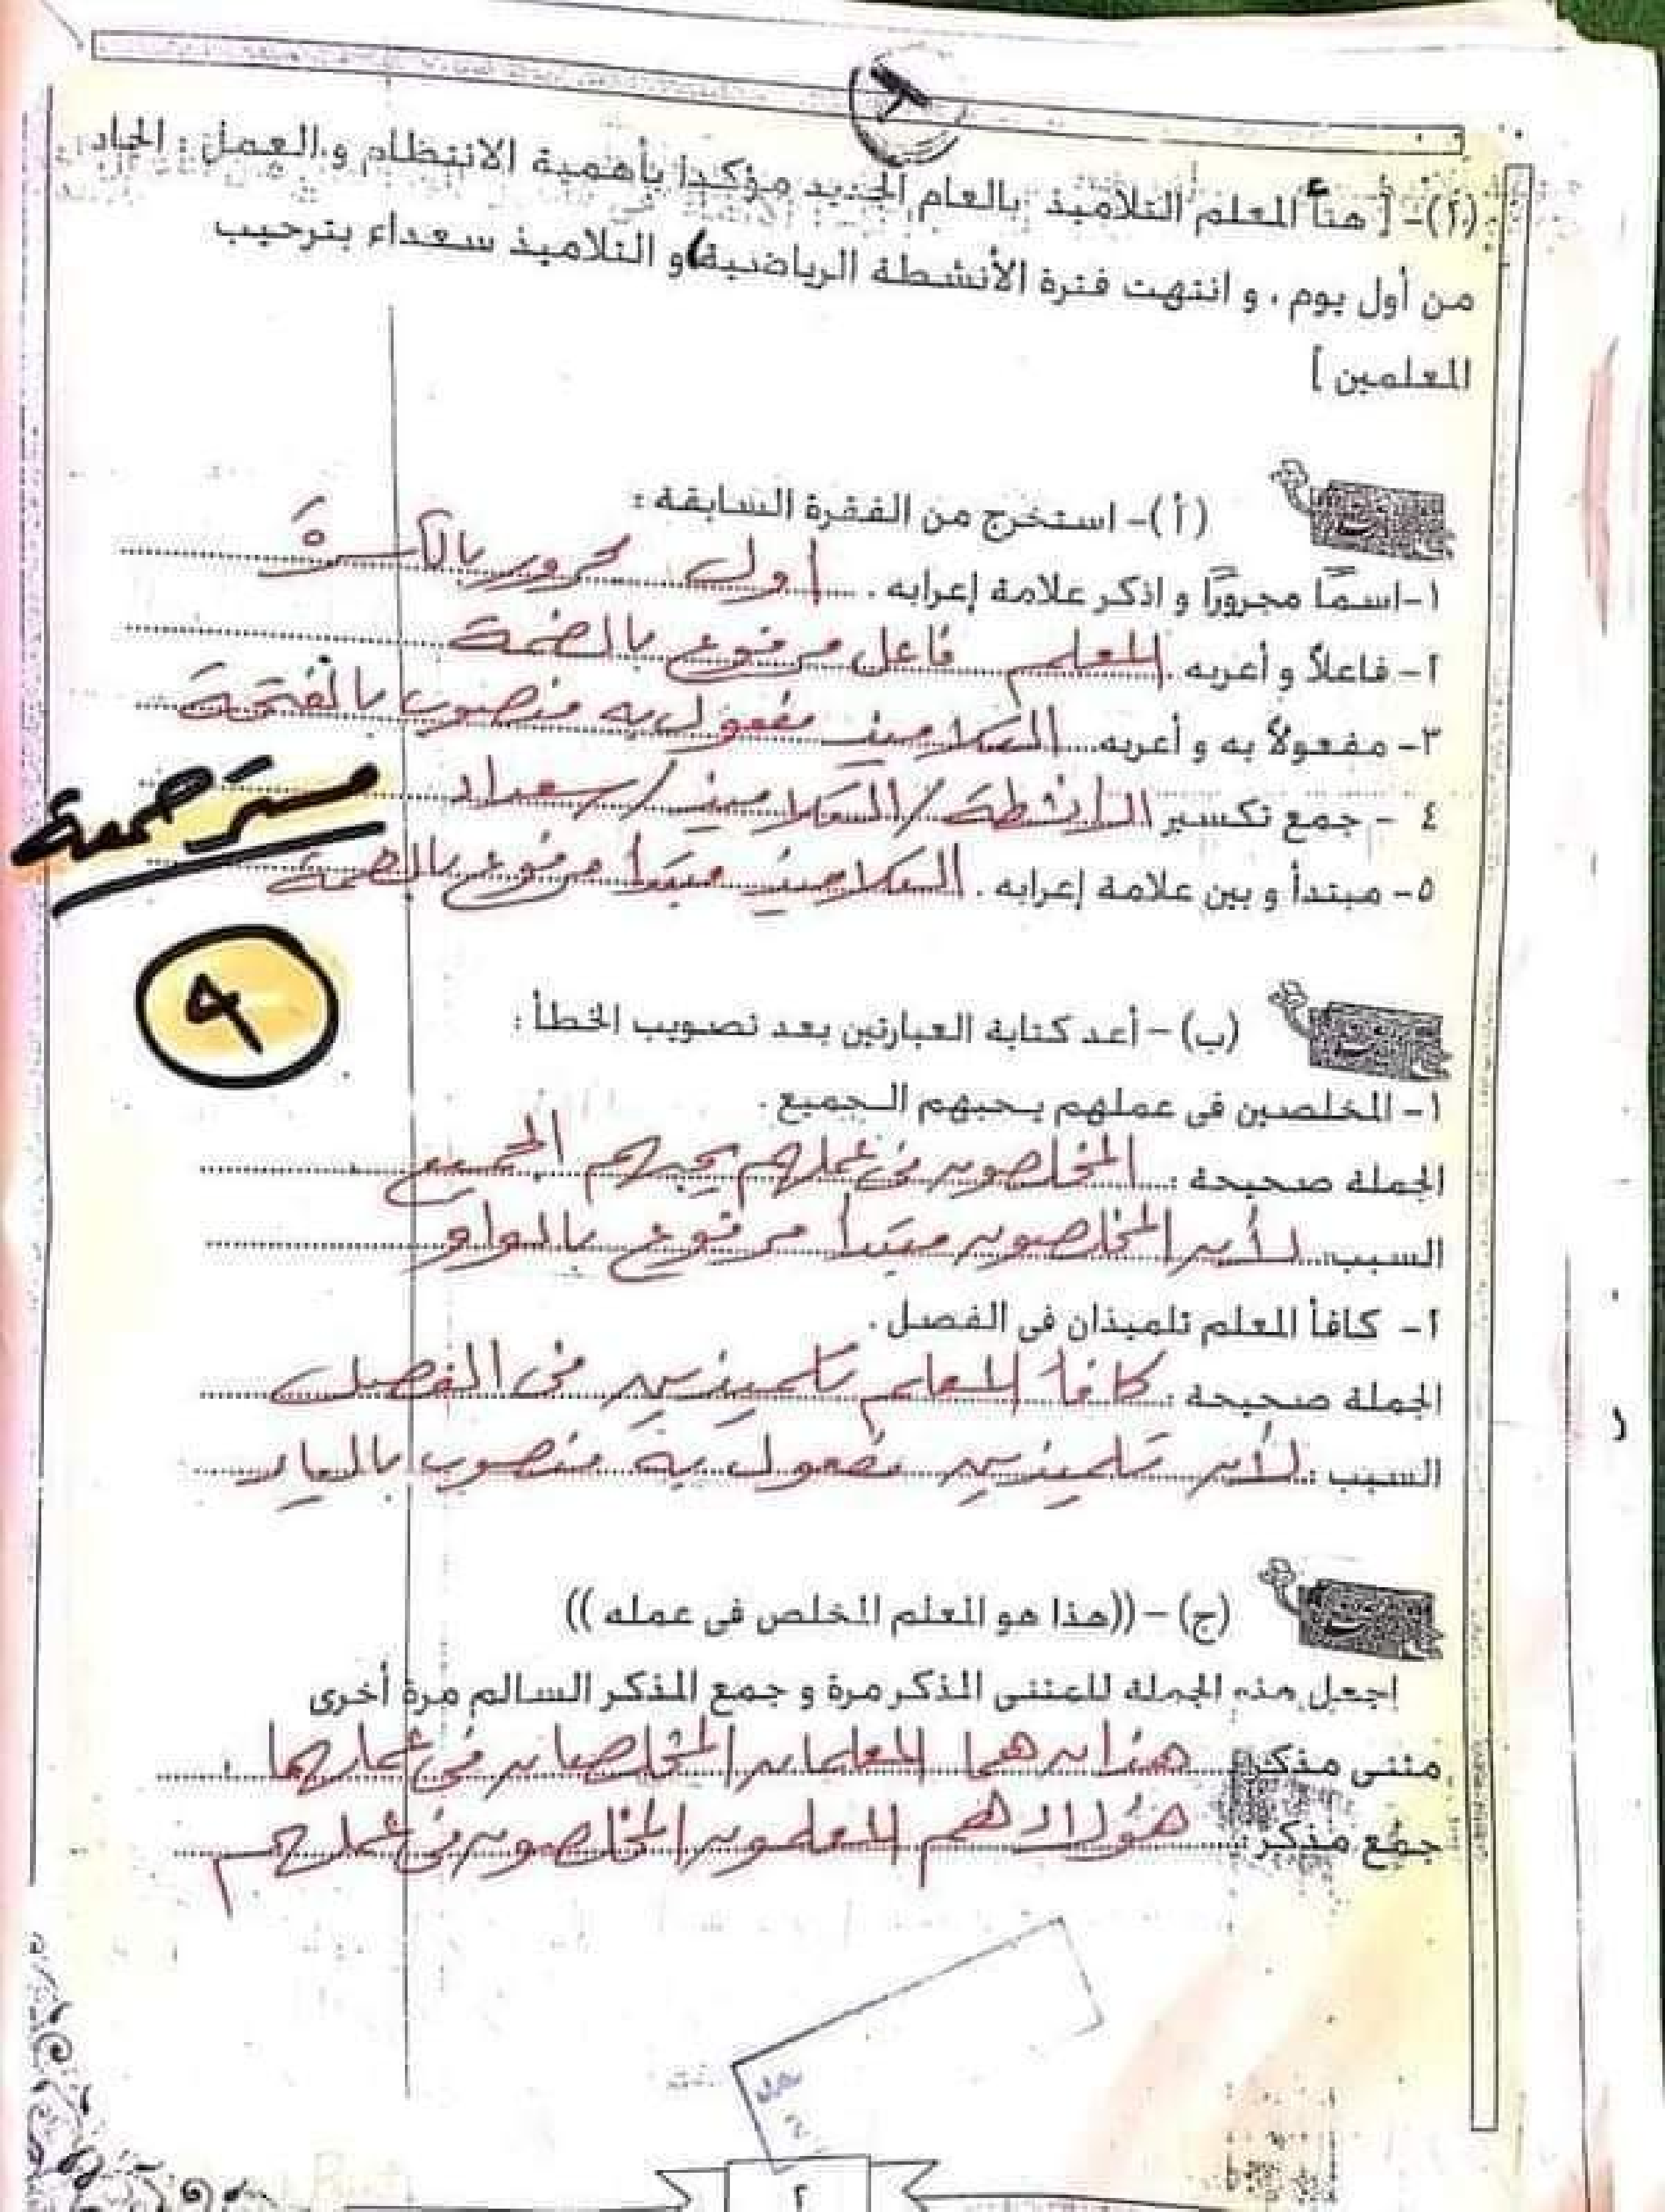 (٢)- [ هنأ المعلم التلاميذ بالعام الجديد مؤكدا بأهمية الانتظام و العمل الجاد
من أول يوم ، و انتهت فترة الأنشطة الرياضية و التلاميذ سعداء بترحيب
المعلمين ]
(أ)- استخرج من الفقرة السابقة :
١-اسمًا مجرورًا و اذكر علامة إعرابه . أول مجرور بالكسرة
٢- فاعلاً و أعربه . المعلم فاعل مرفوع بالضمة
٣- مفعولاً به و أعربه . التلاميذ مفعول به منصوب بالفتحة
٤ - جمع تكسير الأنشطة / التلاميذ / سعداء
مستر جمعة
٥- مبتدأ و بين علامة إعرابه . التلاميذ مبتدأ مرفوع بالضمة
(ب) - أعد كتابة العبارتين بعد تصويب الخطأ :
١- المخلصين فى عملهم يحبهم الجميع .
الجملة صحيحة : المخلصون فى عملهم يحبهم الجميع
السبب : لأن المخلصون مبتدأ مرفوع بالواو
٢- كافأ المعلم تلميذان فى الفصل .
الجملة صحيحة : كافأ المعلم تلميذين فى الفصل
السبب : لأن تلميذين مفعول به منصوب بالياء
(ج) - ((هذا هو المعلم المخلص فى عمله ))
اجعل هذه الجملة للمثنى المذكر مرة و جمع المذكر السالم مرة أخرى
مثنى مذكر : هذان هما المعلمان المخلصان فى عملهما
جمع مذكر : هؤلاء هم المعلمون المخلصون فى عملهم
٢